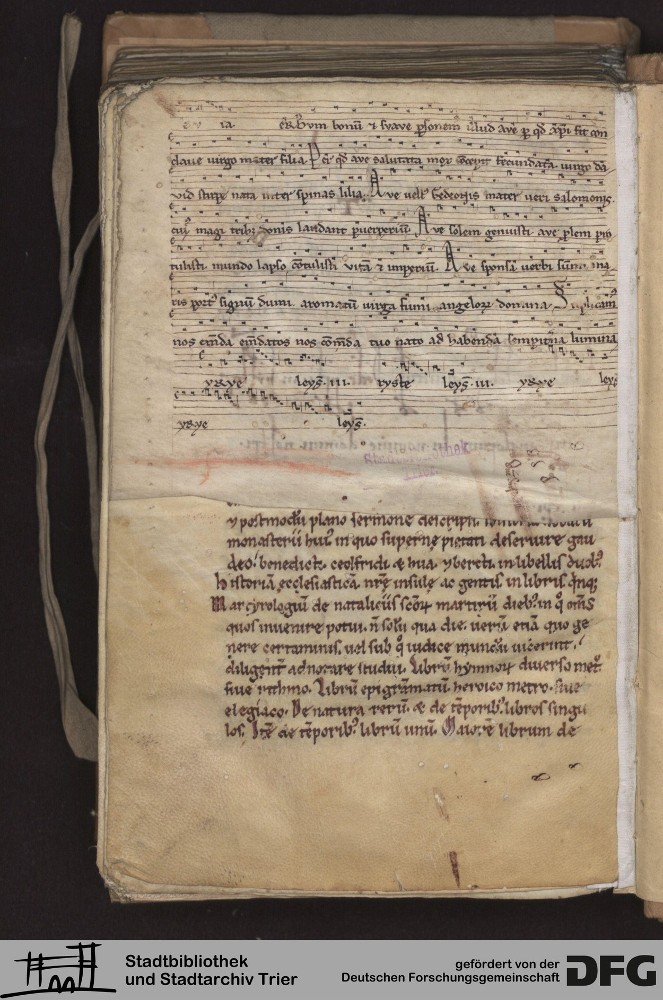 ev ia. erbum bonū ⁊ suaue psonem illud aue p qd xpi fit con
claue uirgo mater filia. Per qd aue salutata mox concepit fecundata uirgo da
uid stirpe nata inter spinas lilia. Aue uell gedeonis mater ueri salomonis.
cui magi tribꝰ donis laudant puerperiū. Aue solem genuisti aue plem pro
tulisti. mundo lapso contulisti uitā ⁊ imperiū. Aue sponsa uerbi sūmi ma
ris port signum dumi. aromatū uirga fumi. angeloꝝ domina. Supplicam
nos emda emdatos nos cōmda tuo nato ad habenda sempitna lumina
yꝛye leys. iii. xyste leys. iii. yꝛye leys
yꝛye leys.
ypostmodū plano sermone descripsi
monasterii huiꝰ in quo supernę pietati deseruire gau
deo. benedicti. ceolfridi. & hua ybercti. in libellis duobꝰ.
hystoriā ecclesiasticā nrę insulę ac gentis. in libris qnqꝫ
Martyrologiū de nataliciis scōꝝ martirū diebꝰ. in q̊ om̄s
quos inuenire potui. n̄ solū qua die. uerū etiā quo ge
nere certaminis. uel sub q̊ iudice mundū uicerint.
diligent adnotare studui. Librū hymnoꝝ diuerso met
siue rithmo. Librū epigrāmatū heroico metro. siue
elegiaco. De natura rerū. & de tēporibꝰ. libros singu
los. Itē de tēporibꝰ. librū unū. Maiorē librum de
Stadtbibliothek
und Stadtarchiv Trier
gefördert von der
Deutschen Forschungsgemeinschaft
DFG